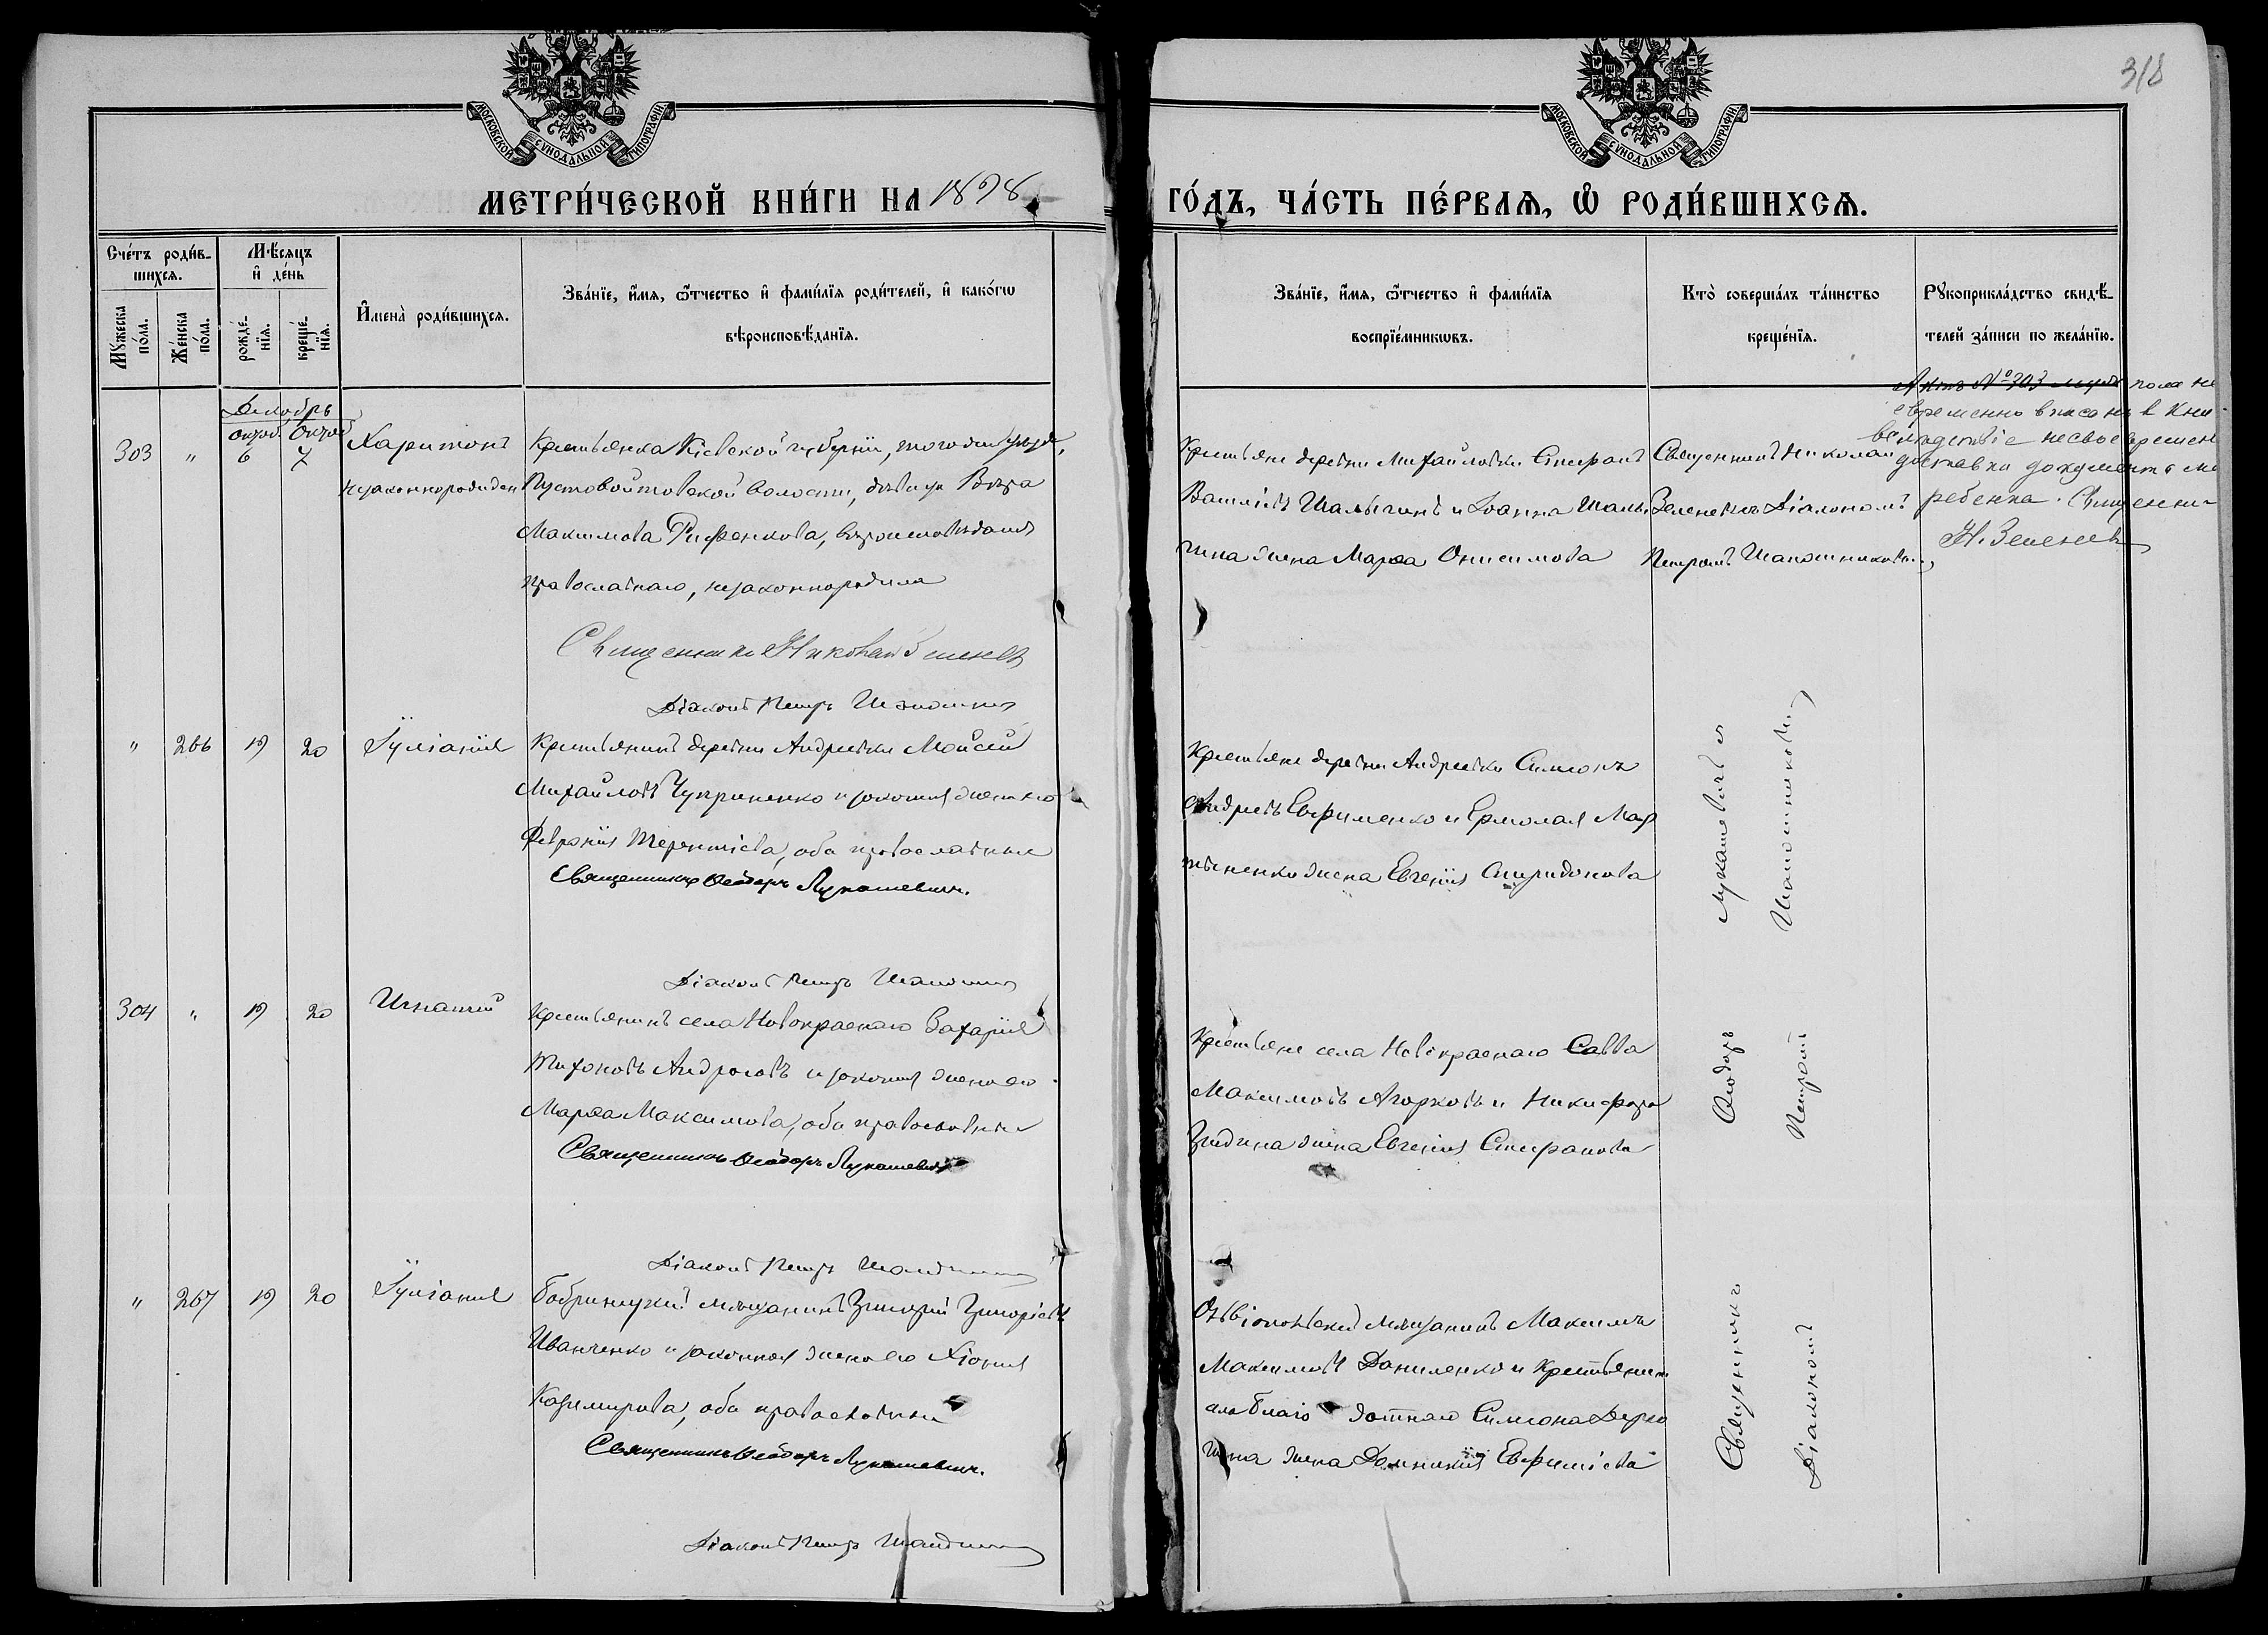 318
МОСКОВСКОЙ СѴНОДАЛЬНОЙ ТИПОГРАФІИ
МОСКОВСКОЙ СѴНОДАЛЬНОЙ ТИПОГРАФІИ
МЕТРИ́ЧЕСКОЙ КНИ́ГИ НА 1898 ГО́ДЪ, ЧА́СТЬ ПЕ́РВАѦ, Ѡ РОДИ́ВШИХСѦ.
Сче́тъ роди́в-
шихсѧ.
Мꙋ́жеска по́ла.
Же́нска по́ла.
Мѣ́сяцъ
и де́нь
рожде́-
нїѧ.
креще́-
нїѧ.
Имена̀ роди́вшихсѧ.
Зва́нїе, и́мѧ, ѻ҆́тчество и фами́лїѧ роди́телей, и како́гѡ
вѣроисповѣ́данїѧ.
Зва́нїе, и́мѧ, ѻ҆́тчество и фами́лїѧ
воспрїе́мникѡвъ.
Кто̀ соверша́лъ та́инство
креще́нїѧ.
Рꙋкоприкла́дство свидѣ́-
телей за́писи по жела́нїю.
Декабрь
303 " 6 7 Харитонъ
незаконнорожден
Крестьянка Кіевской губерніи, того же уѣзда,
Пустовойтовской волости, дѣвица Вѣра
Максимова, вѣроисповѣданія
православнаго, незаконнородила
Священникъ Николай Зеленевъ
Діаконъ Петръ
Крестьяне деревни Михайловки Стефанъ
Василіевъ Шалыгинъ и Іоанна Шалы
гина жена Марѳа Онисимова
Священникъ Николай
Зеленевъ Діакономъ
Петромъ Шапошниковымъ
Актъ № 303 пола не
временно вписанъ в кни
вслѣдствіе несвоевремен
доставки документа
ребенка. Священни
Н. Зеленевъ
" 266 19 20 Іуліанія
Крестьянинъ деревни Андреевки Моисей
Михайловъ Чуприненко и законная жена его
Февронія Терентіева, оба православные
Священникъ Ѳеодоръ Лукашевичъ.
Діаконъ Петръ
Крестьяне деревни Андреевки Симеонъ
Андреевъ Ефименко и Ермолая Мар
тыненко жена Евгенія Спиридонова
304 " 19 20 Игнатій
Крестьянинъ села Новокраснаго Захарія
Тихоновъ Андросовъ и законная жена его
Марѳа Максимова, оба православные
Священникъ Ѳеодоръ Лукашевичъ
Діаконъ Петръ
Крестьяне села Новокраснаго Савва
Максимовъ и Никифора
жена Евгенія Стефанова
" 267 19 20 Іуліанія
Бобринецкій мѣщанинъ Григорій Григоріевъ
Иванченко и законная жена его Хіонія
Казимирова, оба православные
Священникъ Ѳеодоръ Лукашевичъ.
Діаконъ Петръ
Ольвіопольскій мѣщанинъ Максимъ
Максимовъ Даниленко и крестьянина
села Благо датнаго Симеона
жена Домникія Евфиміева
Священникъ Ѳеодоръ Лукашевичъ и
Діаконъ Петромъ Шапошниковымъ